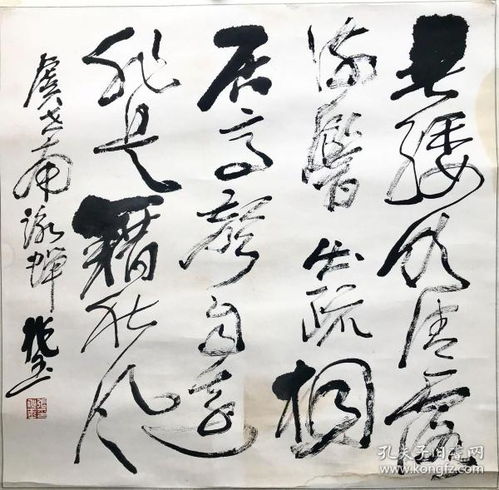 垂緌飲清露
流響出疏桐
居高聲自遠
非是藉秋風
虞世南詠蟬
孔夫子旧书网
www.kongfz.com